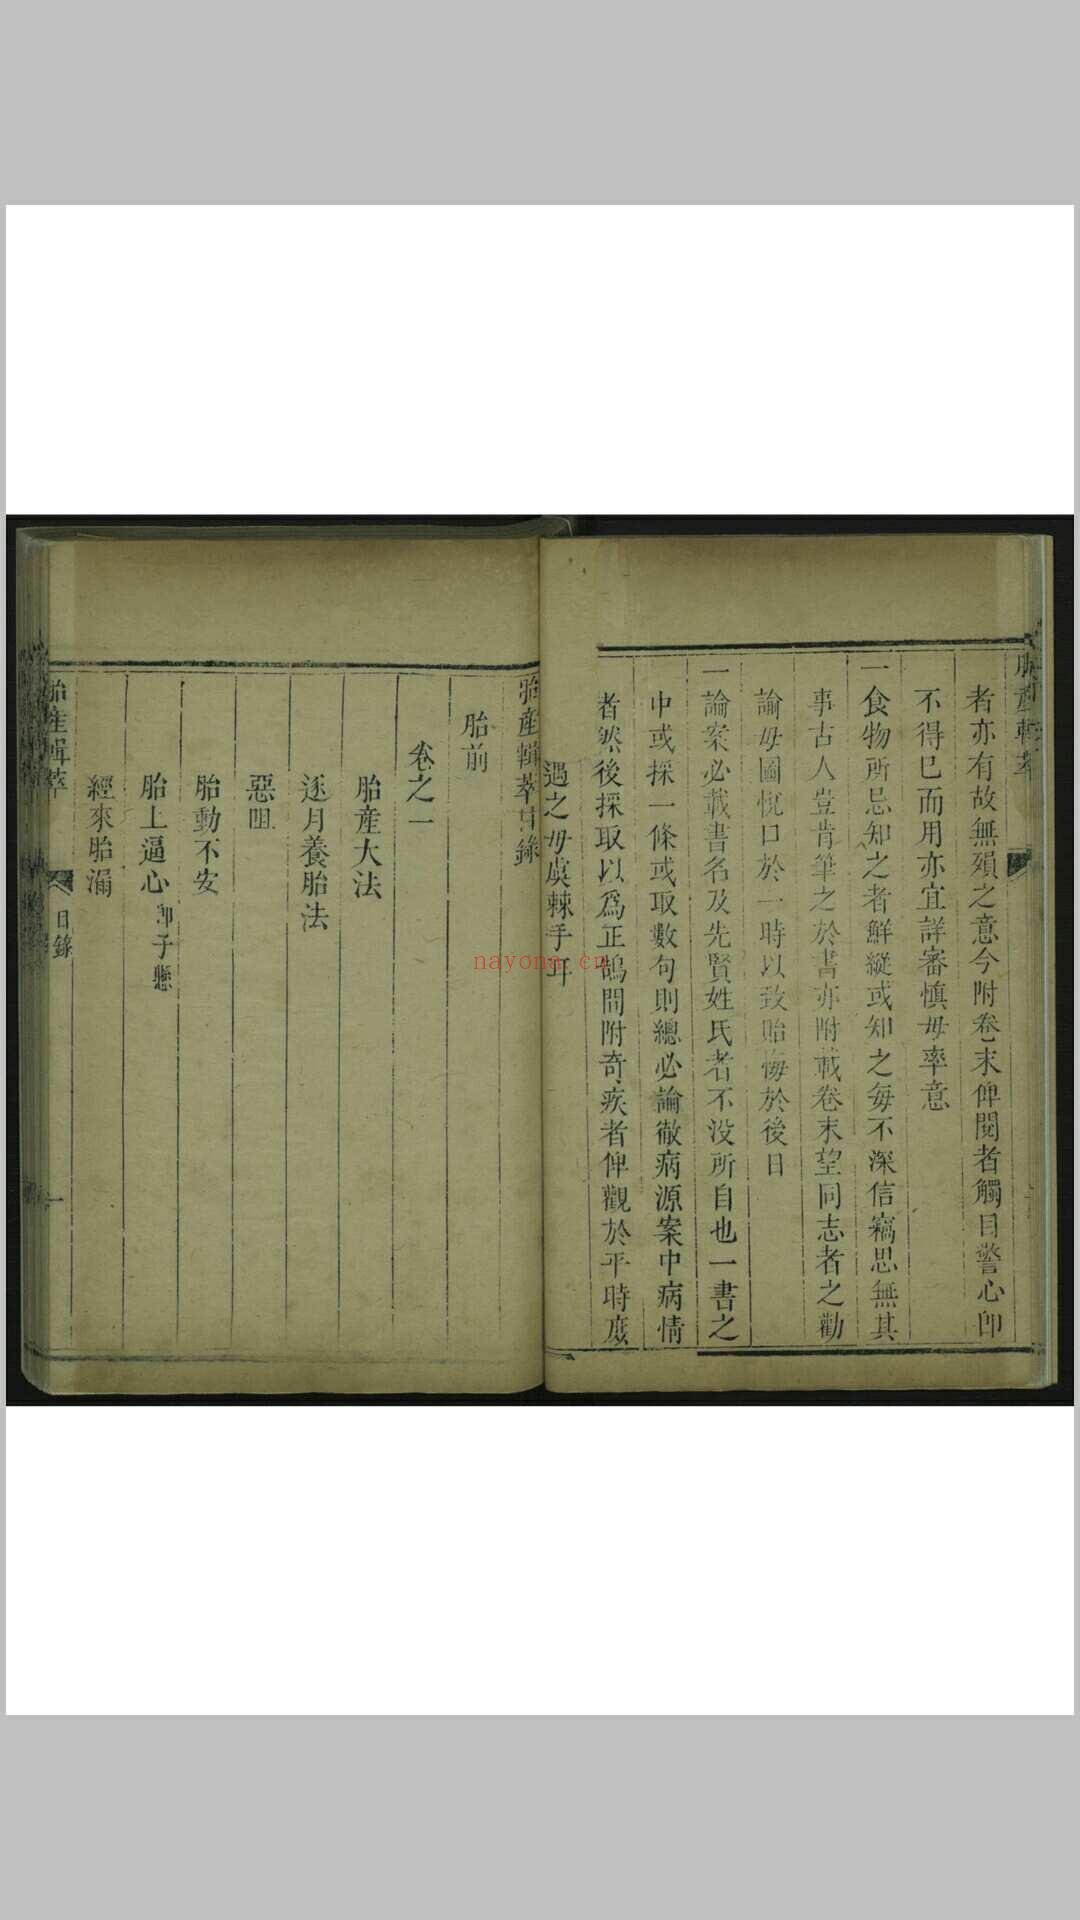 胎產輯萃
者亦有故無殞之意今附卷末俾閱者觸目警心即
不得已而用亦宜詳審慎毋率意
一食物所忌知之者鮮縱或知之每不深信竊思無其
事古人豈肯筆之於書亦附載卷末望同志者之勸
諭毋圖悅口於一時以致貽悔於後日
一論案必載書名及先賢姓氏者不没所自也一書之
中或採一條或取數句則總必論徹病源案中病情
者然後採取以爲正鵠間附奇疾者俾觀於平時庶
遇之毋虞棘手耳
胎產輯萃目錄
胎前
卷之一
胎產大法
逐月養胎法
惡阻
胎動不安
胎上逼心即子懸
經來胎漏
胎產輯萃 目錄 一
nayona.cn